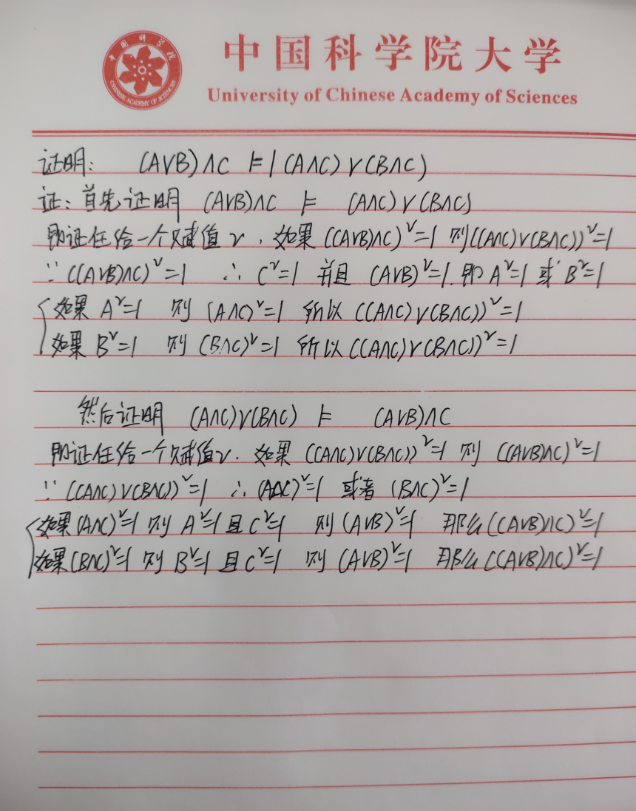 中国科学院大学
University of Chinese Academy of Sciences
证明: (A∨B)∧C ⊨| (A∧C)∨(B∧C)
证: 首先证明 (A∨B)∧C ⊨ (A∧C)∨(B∧C)
即证任给一个赋值v, 如果 ((A∨B)∧C)ᵛ=1 则((A∧C)∨(B∧C))ᵛ=1
∵ ((A∨B)∧C)ᵛ=1 ∴ Cᵛ=1 并且 (A∨B)ᵛ=1. 即 Aᵛ=1 或 Bᵛ=1
如果 Aᵛ=1 则 (A∧C)ᵛ=1 所以 ((A∧C)∨(B∧C))ᵛ=1
如果 Bᵛ=1 则 (B∧C)ᵛ=1 所以 ((A∧C)∨(B∧C))ᵛ=1
然后证明 (A∧C)∨(B∧C) ⊨ (A∨B)∧C
即证任给一个赋值v. 如果 ((A∧C)∨(B∧C))ᵛ=1 则 ((A∨B)∧C)ᵛ=1
∵ ((A∧C)∨(B∧C))ᵛ=1 ∴ (A∧C)ᵛ=1 或者 (B∧C)ᵛ=1
如果(A∧C)ᵛ=1 则 Aᵛ=1 且 Cᵛ=1 则 (A∨B)ᵛ=1 那么((A∨B)∧C)ᵛ=1
如果(B∧C)ᵛ=1 则 Bᵛ=1 且 Cᵛ=1 则 (A∨B)ᵛ=1 那么((A∨B)∧C)ᵛ=1